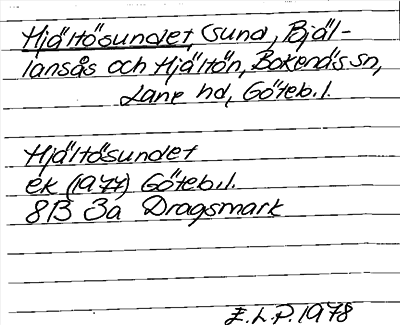 Hjältösundet, (sund, Bjäl-
lansås och Hjältön, Bokenäs sn,
Lane hd, Göteb. l.
Hjältösundet
ek (1977) Göteb. l.
8B 3a Dragsmark
E.L.P. 1978